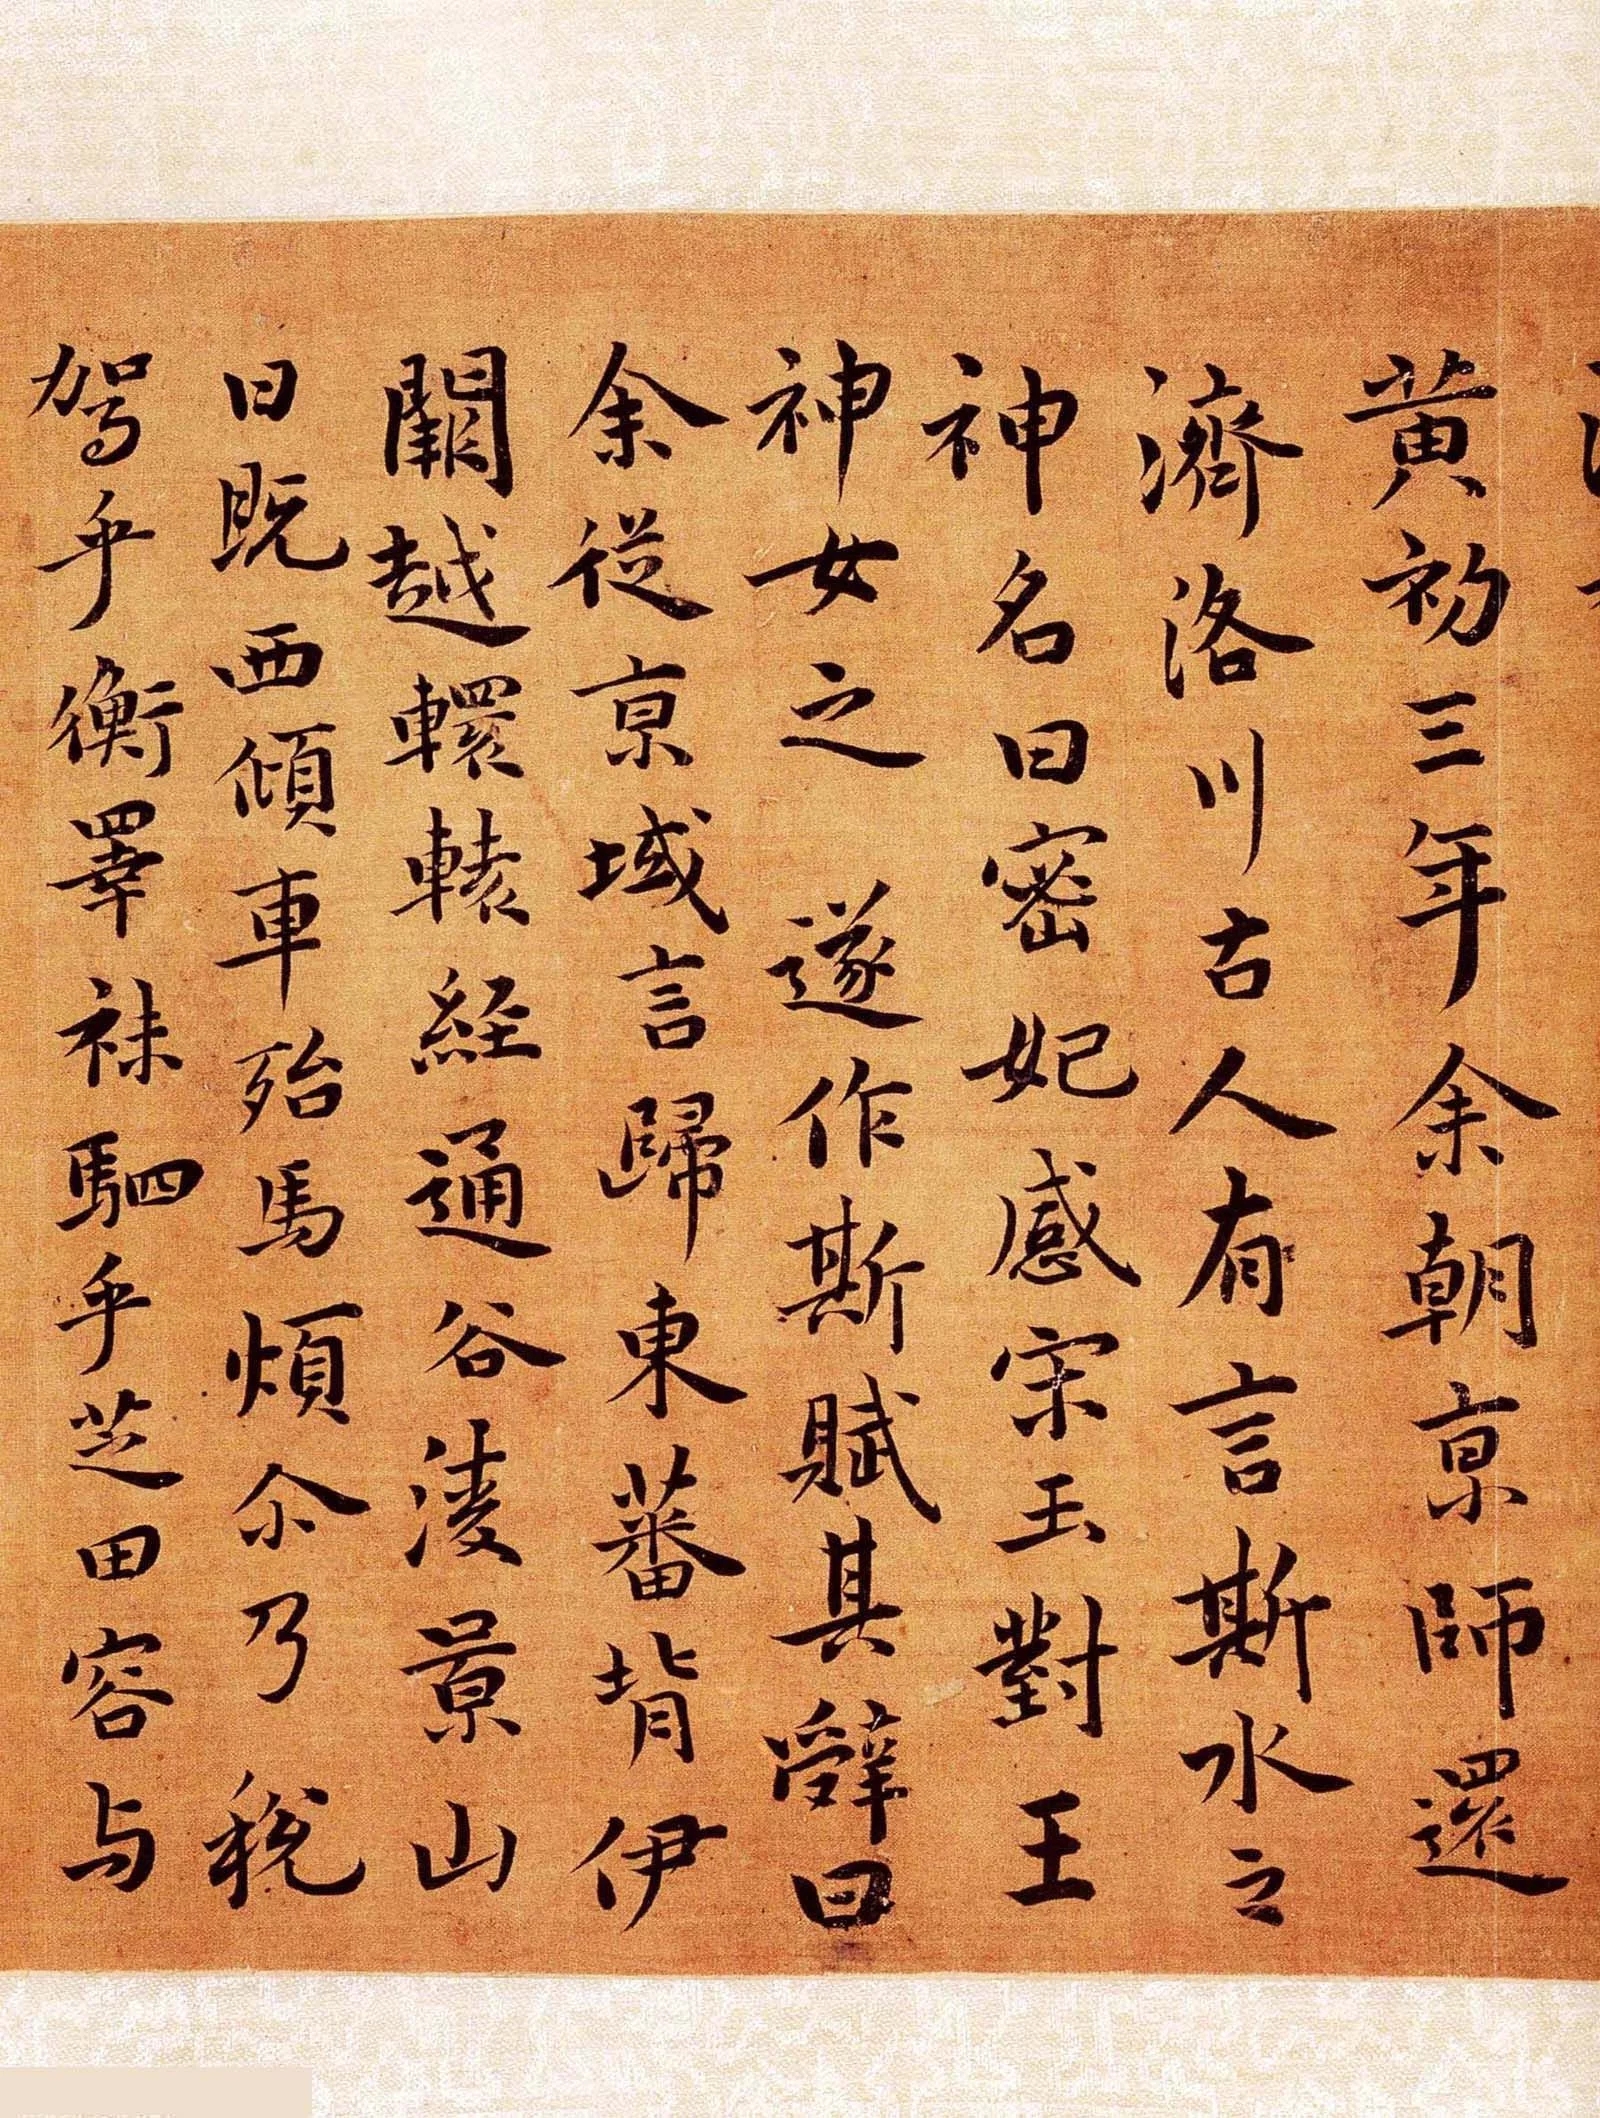 黄初三年余朝京師還
濟洛川古人有言斯水之
神名曰宻妃感宋玉對王
神女之遂作斯賦其辭曰
余從京域言歸東蕃背伊
闕越轘轅経通谷淩景山
日既西傾車殆馬煩尒乃税
駕乎衡睪袜駟乎芝田容与